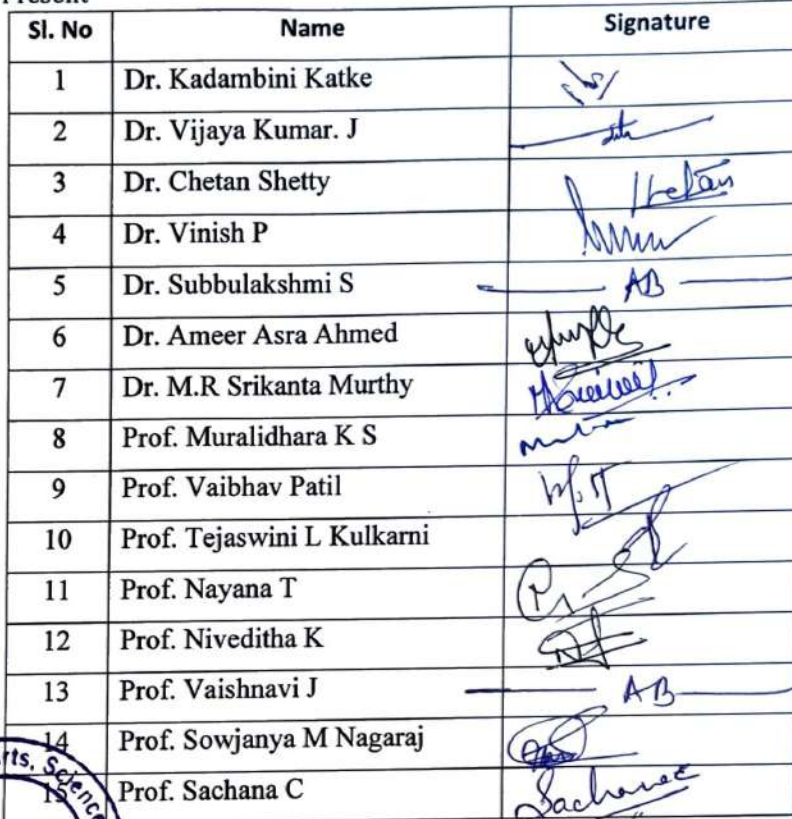 Present
Sl. No Name Signature
1 Dr. Kadambini Katke
2 Dr. Vijaya Kumar. J
3 Dr. Chetan Shetty Chetan
4 Dr. Vinish P
5 Dr. Subbulakshmi S AB
6 Dr. Ameer Asra Ahmed
7 Dr. M.R Srikanta Murthy
8 Prof. Muralidhara K S
9 Prof. Vaibhav Patil
10 Prof. Tejaswini L Kulkarni
11 Prof. Nayana T
12 Prof. Niveditha K
13 Prof. Vaishnavi J AB
14 Prof. Sowjanya M Nagaraj
15 Prof. Sachana C
rts, Science